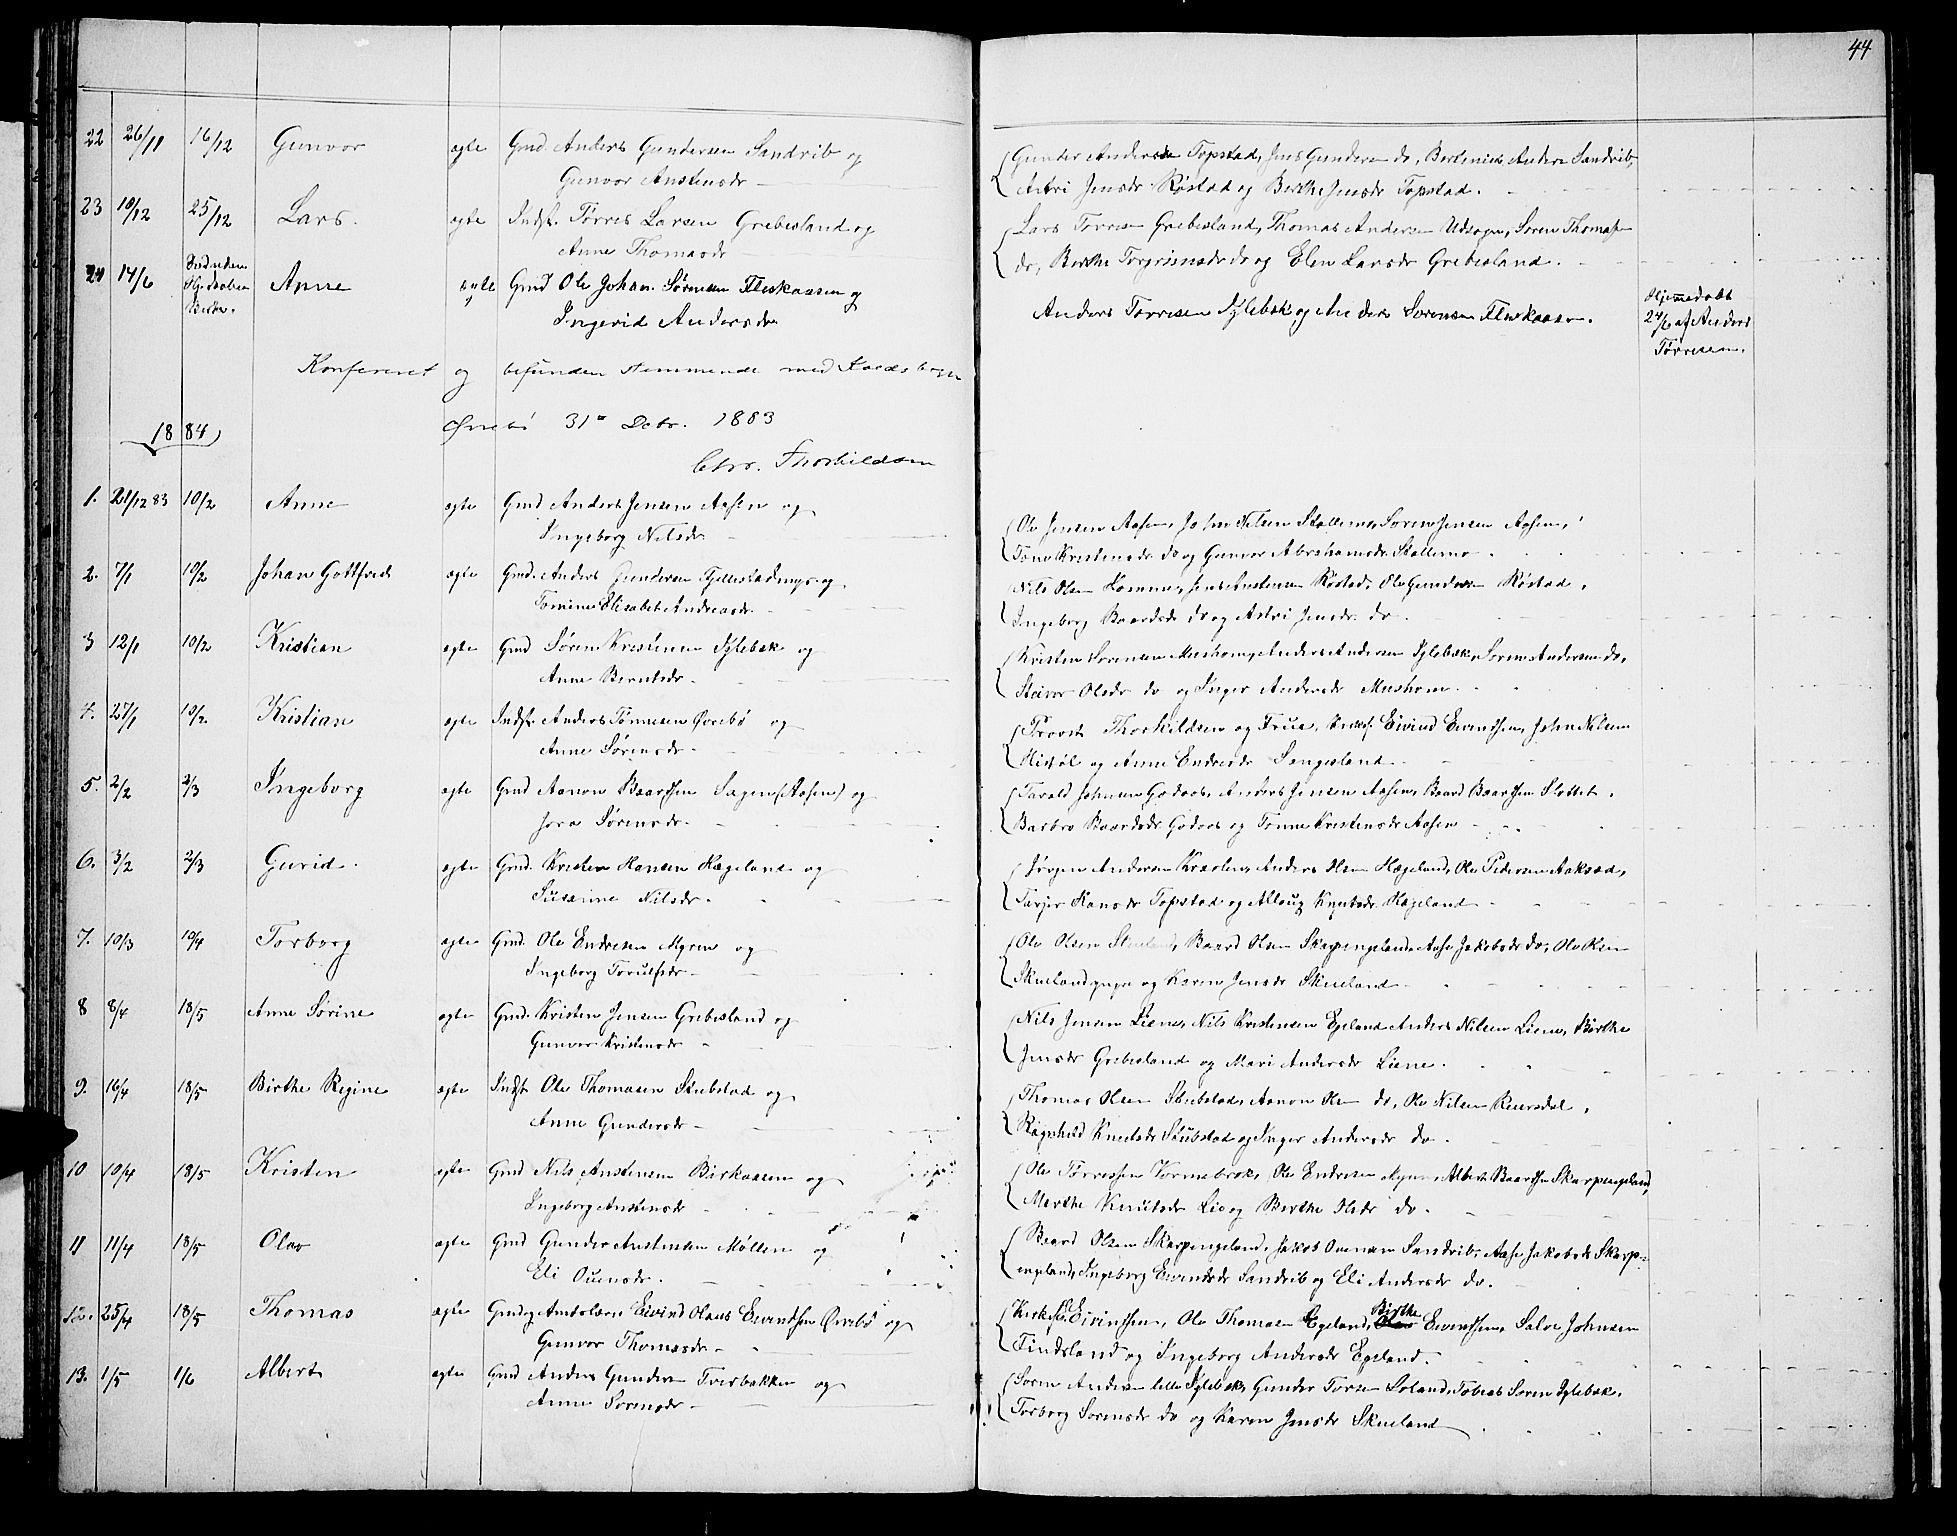 44
22 26/11 16/12 Gunvor ægte Gmd. Anders Gundersen Sandrib og
Gunvor Anstensdr
Gunder Andersen Topstad, Jens Gundersen do, Anders Sandrib,
Astri Jensdr Røstad og Berthe Jensdr Topstad.
23 10/12 25/12 Lars. ægte Indst. Tørres Larsen Grebesland og
Anne Thomasdr
Lars Torresen Grebesland, Thomas Andersen Udsogn, Søren Thomasen
do, Berthe Torgrimsdr do og Elen Larsdr Grebesland.
24 14/6 Anne ægte Gmd Ole Johan Sørensen Fleskaasen og
Ingerid Andersdr
Anders Tørresen Iglebæk og Anders Sørensen Fleskaasen.
Hjemmedøbt
24/6 af Anders
Tørresen.
Konfereret og befunden stemmende med
Øvrebø 31te Decbr. 1883
Chr. Thorkildsen
1884
1. 21/12 83 10/2 Anne ægte Gmd Anders Jensen Aasen og
Ingeborg Nilsdr
Ole Jensen Aasen, John Nilsen Stallemo, Søren Jensen Aasen,
Tone Kristensdr do og Gunvor Abrahamsdr Stallemo
2. 7/1 10/2 Johan Gottfred ægte Gmd. Anders Gundersen og
Tomine Elisabet Andreasdr
Nils Olsen Homme, Jens Anstensen Røstad, Ole Gundersen Røstad,
Ingeborg Baardsdr do og Astri Jensdr do
3 12/1 10/2 Kristian ægte Gmd Søren Kristensen Iglebæk og
Anne Berntsdr
Kristen Sørensen Mushom, Anders Andersen Iglebæk, Søren Andersen do,
Olsdr do og Inger Andersdr Mushom
4. 27/1 10/2 Kristian ægte Indst. Anders Tønnesen Øvrebø og
Anne Sørensdr
Provst Thorkildsen og Frue, Eivind Eivendsen, John Nilsen
og Anne Endresdr Songesland
5. 2/2 2/3 Ingeborg ægte Gmd Aanon Baardsen Sagen (Aasen) og
Jora Sørensdr
Tarald Johnsen Godaas, Anders Jensen Aasen, Baard Baardsen Slottet,
Barbro Baardsdr Godaas og Tonne Kristensdr Aasen
6. 3/2 2/3 Gurid ægte Gmd. Kristen Hansen Hægeland og
Susanne Nilsdr
Jørgen Andersen, Anders Olsen Hægeland, Ole Pedersen,
Tarjer Hansdr Topstad og Allaug Knutsdr Hægeland
7. 10/3 10/4 Torborg ægte Gmd. Ole Endresen Myren og
Ingeborg Torulfsdr
Ole Olsen, Baard Olsen Skarpengeland, Aase Jakobsdr do, Ole Olsen
og Karen Jensdr Skueland
8 8/4 18/5 Anne Sørine ægte Gmd. Kristen Jensen Grebesland og
Gunvor Kristensdr
Nils Jensen Liene, Nils Kristensen Egeland, Anders Nilsen Liene, Birthe
Jensdr Grebesland og Mari Andersdr Liene.
9. 16/4 18/5 Birthe Regine ægte Indst. Ole Thomasen Stubstad og
Anne Gundersdr
Thomas Olsen Stubstad, Aanon Olsen do, Ole Nilsen Reiersdal,
Ragnhild Knutsdr Stubstad og Inger Andersdr do
10 10/4 18/5 Kristen ægte Gmd Nils Anstensen Birkaasen og
Ingeborg Anstensdr
Ole Tørresen, Ole Endresen Myren, Albert Baardsen Skarpengeland,
Marthe Knutsdr Lie og Berthe Olsdr do
11 11/4 18/5 Olav ægte Gmd Gunder Anstensen Møllen og
Eli Ouensdr.
Baard Olsen Skarpengeland, Jakob Ouensen Sandrib, Aase Jakobsdr Skarp-
engeland, Ingeborg Eivendsdr Sandrib og Eli Andersdr do.
12. 25/4 18/5 Thomas ægte Gmd og Amtslærer Eivind Olaus Eivendsen Øvrebø og
Gunvor Thomasdr
Eivindsen, Ole Thomasen Egeland, Birthe Eivendsen, Salve Johnsen
Findsland og Ingeborg Andersdr Egeland.
13. 1/5 1/6 Albert ægte Gmd Anders Gundersen Tverbakken og
Anne Sørensdr
Søren Andersen lille Iglebæk, Gunder Torsen Loland, Tobias Søren Iglebæk,
Torborg Sørensdr do og Karen Jensdr Skueland